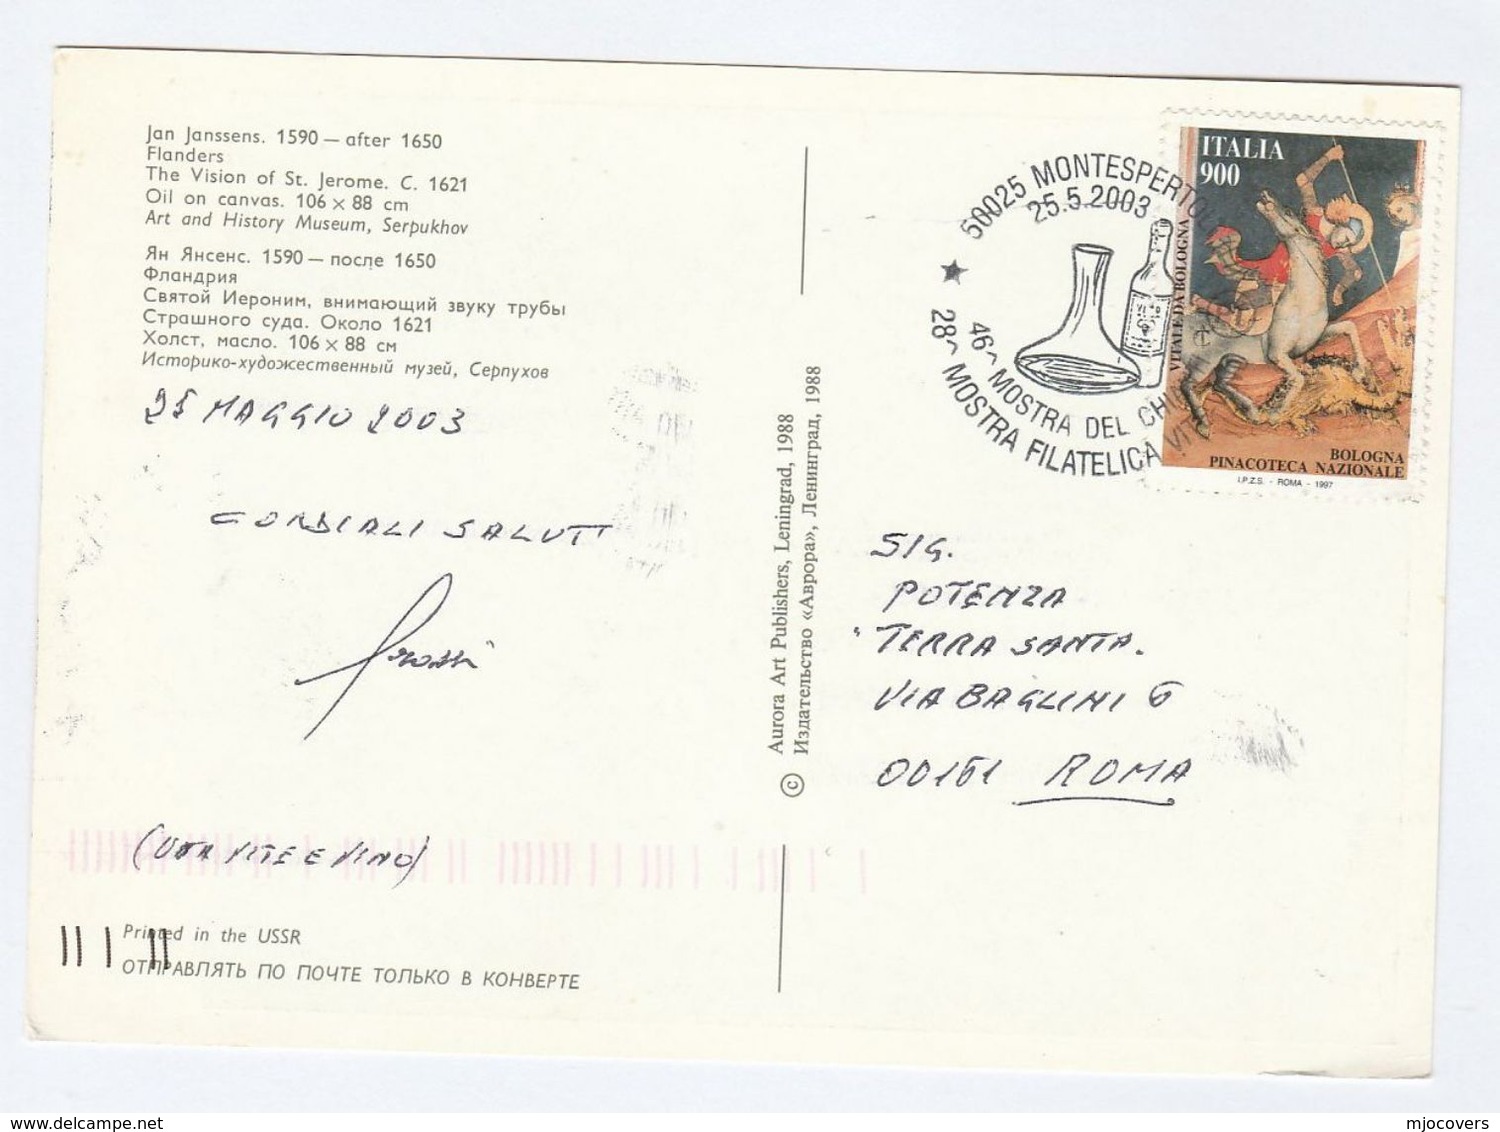 Jan Janssens. 1590 — after 1650
Flanders
The Vision of St. Jerome. C. 1621
Oil on canvas. 106 × 88 cm
Art and History Museum, Serpukhov
Ян Янсенс. 1590 — после 1650
Фландрия
Святой Иероним, внимающий звуку трубы
Страшного суда. Около 1621
Холст, масло. 106 × 88 см
Историко-художественный музей, Серпухов
25 MAGGIO 2003
CORDIALI SALUTI
(VITE E VINO)
Printed in the USSR
ОТПРАВЛЯТЬ ПО ПОЧТЕ ТОЛЬКО В КОНВЕРТЕ
© Aurora Art Publishers, Leningrad, 1988
Издательство «Аврора», Ленинград, 1988
50025 MONTESPERTOLI
25.5.2003
46^ MOSTRA DEL CHI
28^ MOSTRA FILATELICA VIT
ITALIA
900
VITALE DA BOLOGNA
BOLOGNA
PINACOTECA NAZIONALE
I.P.Z.S. - ROMA - 1997
SIG.
POTENZA
"TERRA SANTA"
VIA BAGLINI 6
00161 ROMA
mjocovers